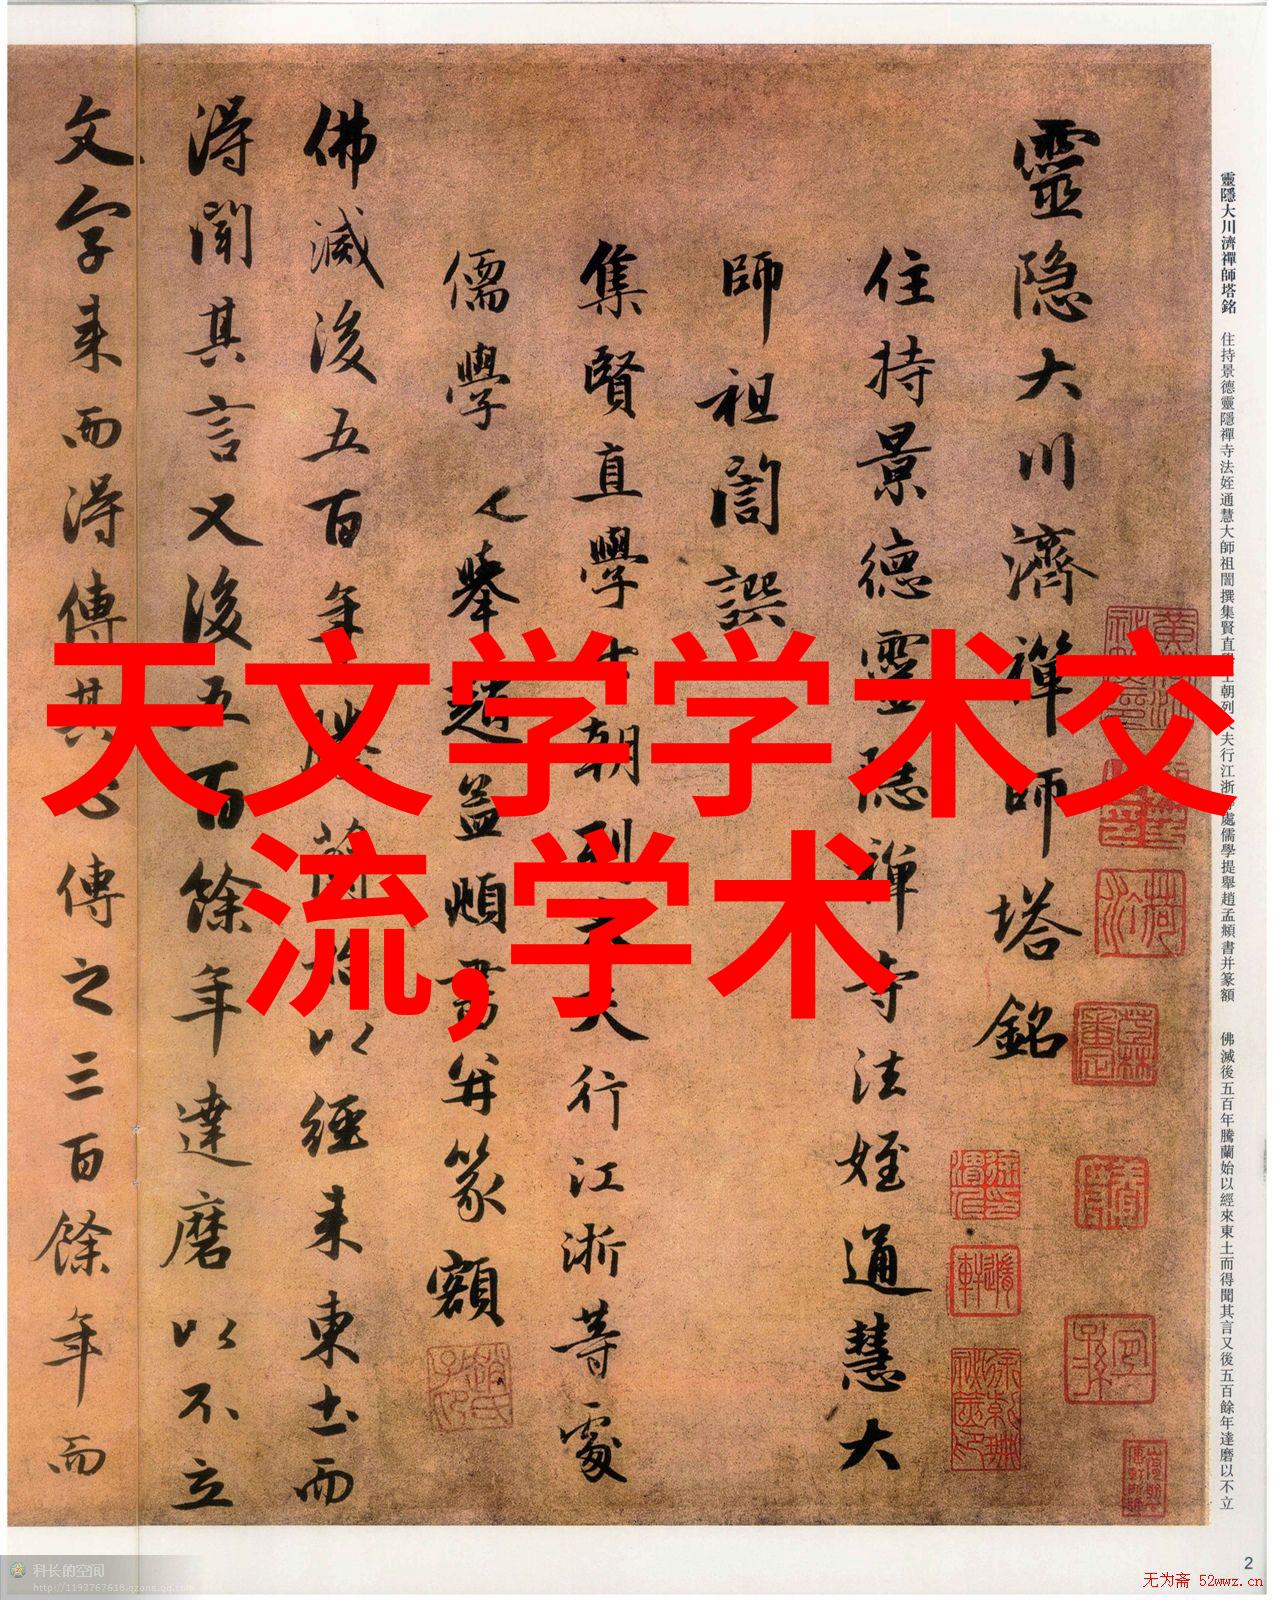 靈隐大川濟禪師塔銘
住持景德靈隐禅寺法姪通慧大
師祖誾譔
集賢直學士朝列大夫行江浙等處
儒學提舉趙孟頫書并篆額
佛滅後五百年騰蘭始以經来東土而
得聞其言又後五百餘年達磨以不立
文字来而得傳其心傳之三百餘年而
天文学学术交
流,学术
靈隱大川濟禪師塔銘 住持景德靈隱禪寺法姪通慧大師祖誾撰集賢直學士朝列大夫行江浙等處儒學提舉趙孟頫書并篆額 佛滅後五百年騰蘭始以經來東土而得聞其言又後五百餘年達磨以不立
2
科长的空间
http://1193767618.qzone.qq.com
无为斋 52wwz.cn